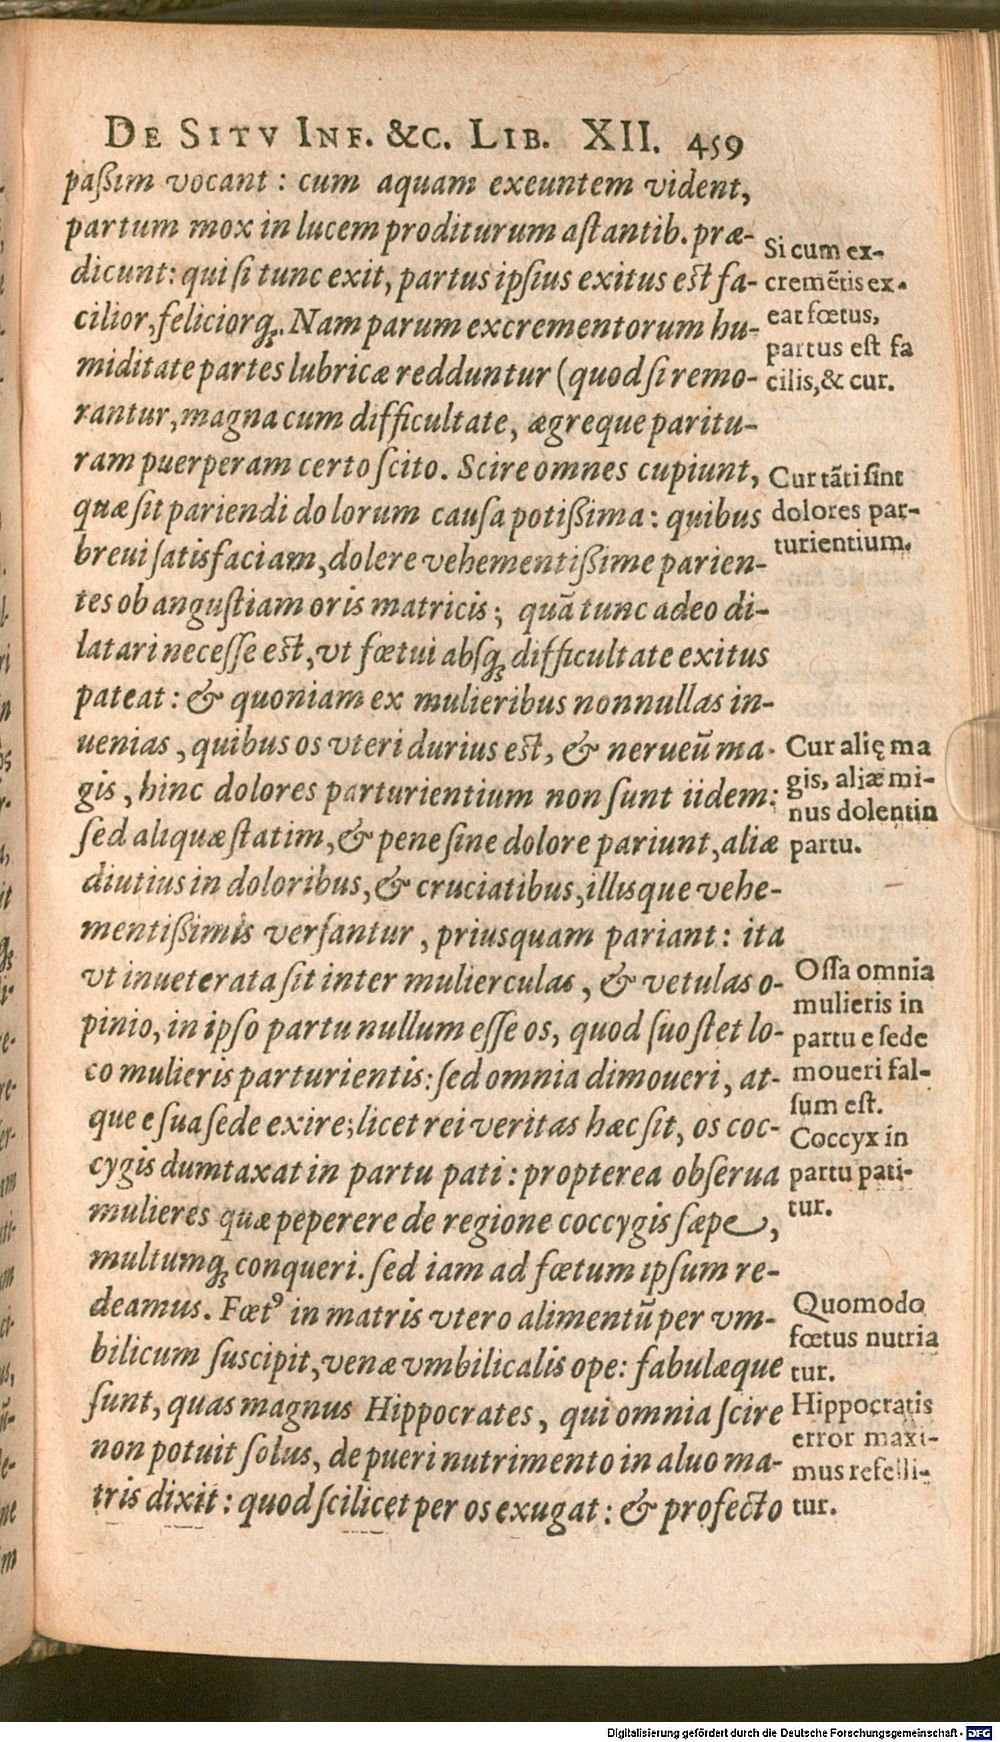 DE SITV INF. &C. LIB. XII. 459
paßim vocant: cum aquam exeuntem vident,
partum mox in lucem proditurum aſtantib. præ-
dicunt: qui ſi tunc exit, partus ipſius exitus eſt fa-
cilior, feliciorq́;. Nam parum excrementorum hu-
miditate partes lubricæ redduntur (quod ſi remo-
rantur, magna cum difficultate, ægreque paritu-
ram puerperam certo ſcito. Scire omnes cupiunt,
quæ ſit pariendi dolorum cauſa potißima: quibus
breui ſatisfaciam, dolere vehementißime parien-
tes ob anguſtiam oris matricis; quā tunc adeo di-
latari neceſſe eſt, vt fœtui abſq́; difficultate exitus
pateat: & quoniam ex mulieribus nonnullas in-
uenias, quibus os vteri durius eſt, & nerueū ma-
gis, hinc dolores parturientium non ſunt iidem:
ſed aliquæ ſtatim, & pene ſine dolore pariunt, aliæ
diutius in doloribus, & cruciatibus, illisque vehe-
mentißimis verſantur, priusquam pariant: ita
vt inueterata ſit inter mulierculas, & vetulas o-
pinio, in ipſo partu nullum eſſe os, quod ſuo ſtet lo-
co mulieris parturientis: ſed omnia dimoueri, at-
que e ſua ſede exire; licet rei veritas hæc ſit, os coc-
cygis dumtaxat in partu pati: propterea obſerua
mulieres quæ peperere de regione coccygis ſæpe,
multumq́; conqueri. ſed iam ad fœtum ipſum re-
deamus. Fœtꝰ in matris vtero alimentū per vm-
bilicum ſuscipit, venæ vmbilicalis ope: fabulæque
ſunt, quas magnus Hippocrates, qui omnia ſcire
non potuit ſolus, de pueri nutrimento in aluo ma-
tris dixit: quod ſcilicet per os exugat: & profecto
Si cum ex-
cremētis ex-
eat fœtus,
partus eſt fa
cilis, & cur.
Cur tāti ſint
dolores par-
turientium.
Cur alię ma
gis, aliæ mi-
nus dolent in
partu.
Oſſa omnia
mulieris in
partu e ſede
moueri fal-
ſum eſt.
Coccyx in
partu pati-
tur.
Quomodo
fœtus nutria
tur.
Hippocratis
error maxi-
mus refelli-
tur.
Digitalisierung gefördert durch die Deutsche Forschungsgemeinschaft - DFG